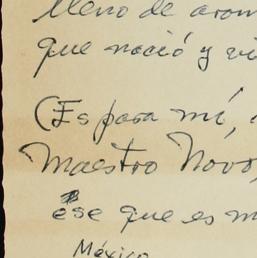 lleno de arom
que nació y vi
(Es para mí,
Maestro Novo,
ése que es m
México